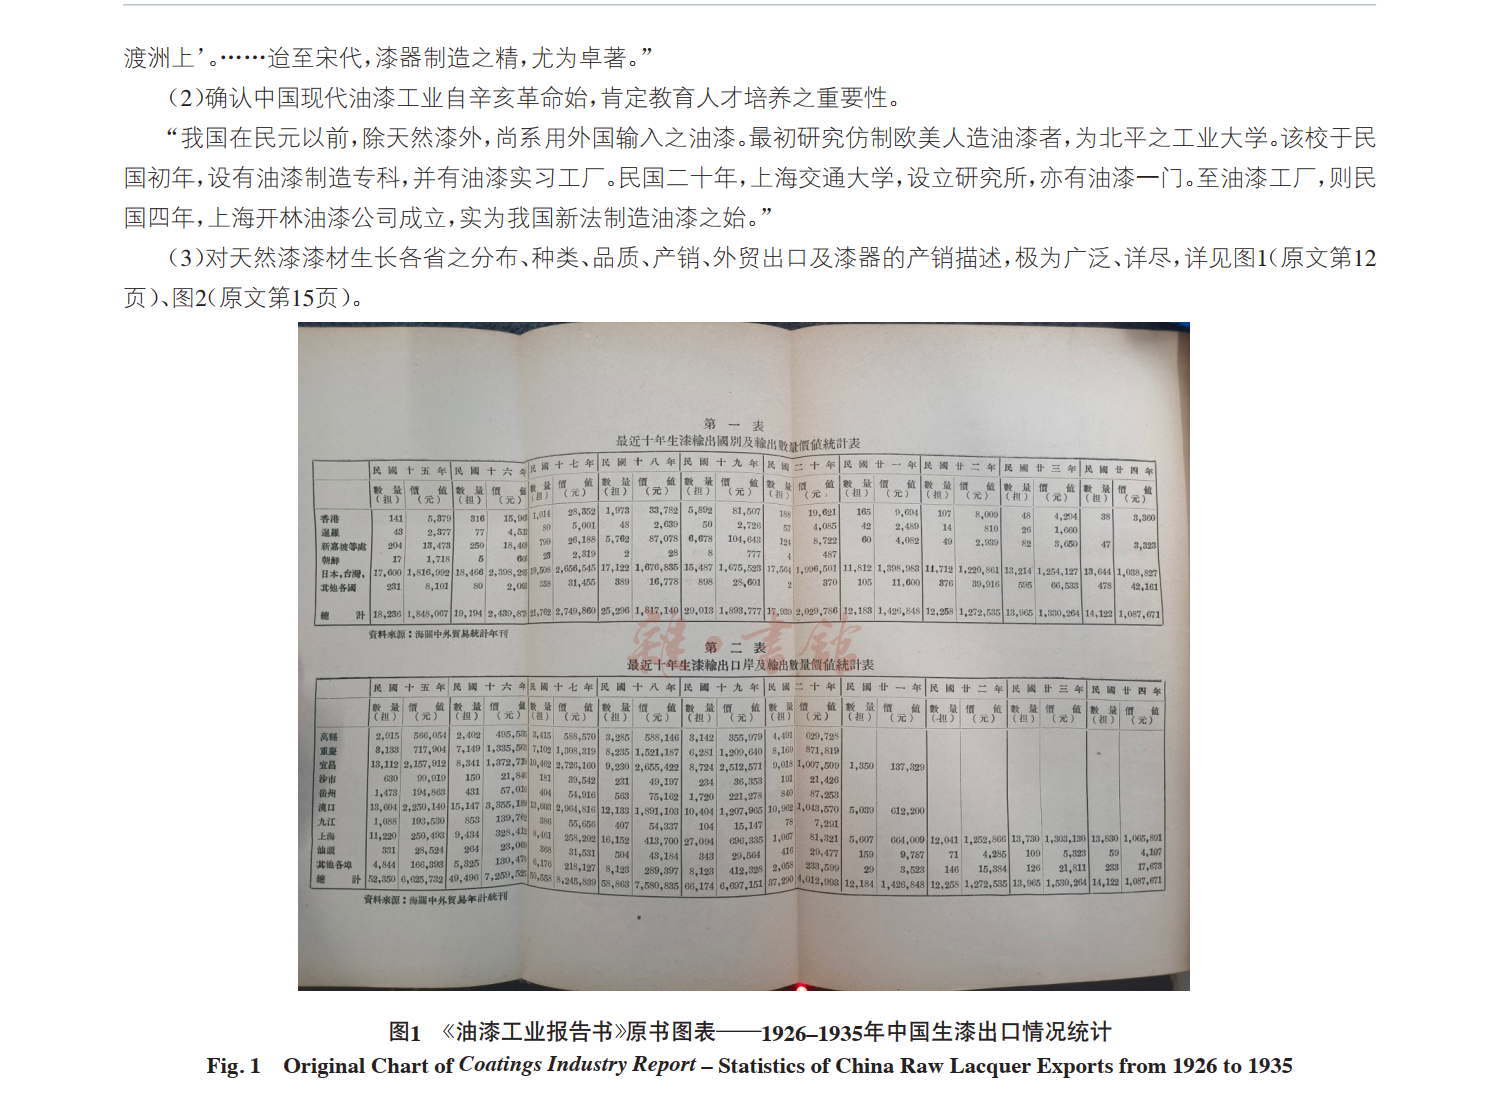 渡洲上’。……迨至宋代，漆器制造之精，尤为卓著。”
（2）确认中国现代油漆工业自辛亥革命始，肯定教育人才培养之重要性。
“我国在民元以前，除天然漆外，尚系用外国输入之油漆。最初研究仿制欧美人造油漆者，为北平之工业大学。该校于民
国初年，设有油漆制造专科，并有油漆实习工厂。民国二十年，上海交通大学，设立研究所，亦有油漆一门。至油漆工厂，则民
国四年，上海开林油漆公司成立，实为我国新法制造油漆之始。”
（3）对天然漆漆材生长各省之分布、种类、品质、产销、外贸出口及漆器的产销描述，极为广泛、详尽，详见图1（原文第12
页）、图2（原文第15页）。
第一表
最近十年生漆輸出國別及輸出數量價值統計表
民國十五年 民國十六年 民國十七年 民國十八年 民國十九年 民國二十年 民國廿一年 民國廿二年 民國廿三年 民國廿四年
數量（担） 價值（元） 數量（担） 價值（元） 數量（担） 價值（元） 數量（担） 價值（元） 數量（担） 價值（元） 數量（担） 價值（元） 數量（担） 價值（元） 數量（担） 價值（元） 數量（担） 價值（元） 數量（担） 價值（元）
香港 141 5,379 316 1,014 28,352 1,973 33,782 5,892 81,507 188 19,621 165 9,694 107 8,009 48 4,294 38 3,360
暹羅 43 2,377 77 80 5,001 48 2,639 50 2,726 57 4,085 42 2,489 14 810 26 1,660
新嘉坡等處 204 13,473 250 799 26,188 5,762 87,078 6,678 104,643 124 8,722 60 4,082 49 2,939 82 3,650 47 3,323
朝鮮 17 1,718 5 23 2,319 2 28 8 777 4 487
日本,台灣, 17,600 1,816,992 18,466 19,508 2,656,545 17,122 1,676,835 15,487 1,675,523 17,564 1,996,501 11,812 1,398,983 11,712 1,220,861 13,214 1,254,127 13,644 1,038,827
其他各國 231 8,101 80 338 31,455 389 16,778 898 28,601 2 370 105 11,600 376 39,916 595 66,533 478 42,161
總計 18,236 1,848,067 19,194 21,762 2,749,860 25,296 1,817,140 29,013 1,893,777 17,939 2,029,786 12,183 1,426,848 12,258 1,272,535 13,965 1,330,264 14,122 1,087,671
資料來源：海關中外貿易統計年刊
雜·書館
第二表
最近十年生漆輸出口岸及輸出數量價值統計表
民國十五年 民國十六年 民國十七年 民國十八年 民國十九年 民國二十年 民國廿一年 民國廿二年 民國廿三年 民國廿四年
數量（担） 價值（元） 數量（担） 價值（元） 數量（担） 價值（元） 數量（担） 價值（元） 數量（担） 價值（元） 數量（担） 價值（元） 數量（担） 價值（元） 數量（担） 價值（元） 數量（担） 價值（元） 數量（担） 價值（元）
萬縣 2,915 566,054 2,402 3,415 588,570 3,285 588,146 3,142 355,979 4,491 629,728
重慶 3,133 717,904 7,149 7,102 1,308,319 8,235 1,521,187 6,281 1,209,640 8,169 871,819
宜昌 13,112 2,157,912 8,341 10,462 2,726,160 9,230 2,655,422 8,724 2,512,571 9,018 1,007,509 1,350 137,329
沙市 630 99,919 150 181 39,542 231 49,197 234 36,353 191 21,426
1,473 194,863 431 404 54,916 563 75,162 1,720 221,278 840 87,253
漢口 13,604 2,250,140 15,147 13,603 2,964,816 12,133 1,891,103 10,404 1,207,965 10,962 1,043,570 5,039 612,200
九江 1,088 193,530 853 386 55,656 407 54,337 104 15,147 78 7,291
上海 11,220 250,493 9,434 8,461 258,202 16,152 413,700 27,094 696,335 1,067 81,321 5,607 664,009 12,041 1,252,866 13,730 1,303,130 13,830 1,065,891
汕頭 331 28,524 264 368 31,531 504 43,184 343 29,564 416 29,477 159 9,787 71 4,285 109 5,323 59 4,107
其他各埠 4,844 166,393 5,325 6,176 218,127 8,123 289,397 8,123 412,328 2,058 233,599 29 3,523 146 15,384 126 21,811 233 17,673
總計 52,350 6,625,732 49,496 50,558 8,245,839 58,863 7,580,835 66,174 6,697,151 37,290 4,012,993 12,184 1,426,848 12,258 1,272,535 13,965 1,530,264 14,122 1,087,671
資料來源：海關中外貿易年計統刊
图1 《油漆工业报告书》原书图表——1926–1935年中国生漆出口情况统计
Fig. 1 Original Chart of Coatings Industry Report – Statistics of China Raw Lacquer Exports from 1926 to 1935